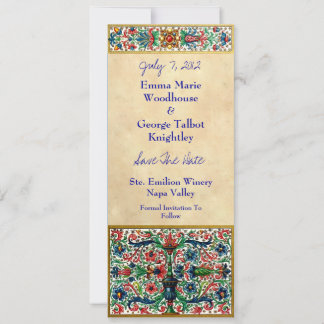 July 7, 2012
Emma Marie
Woodhouse
&
George Talbot
Knightley
Save The Date
Ste. Emilion Winery
Napa Valley
Formal Invitation To
Follow